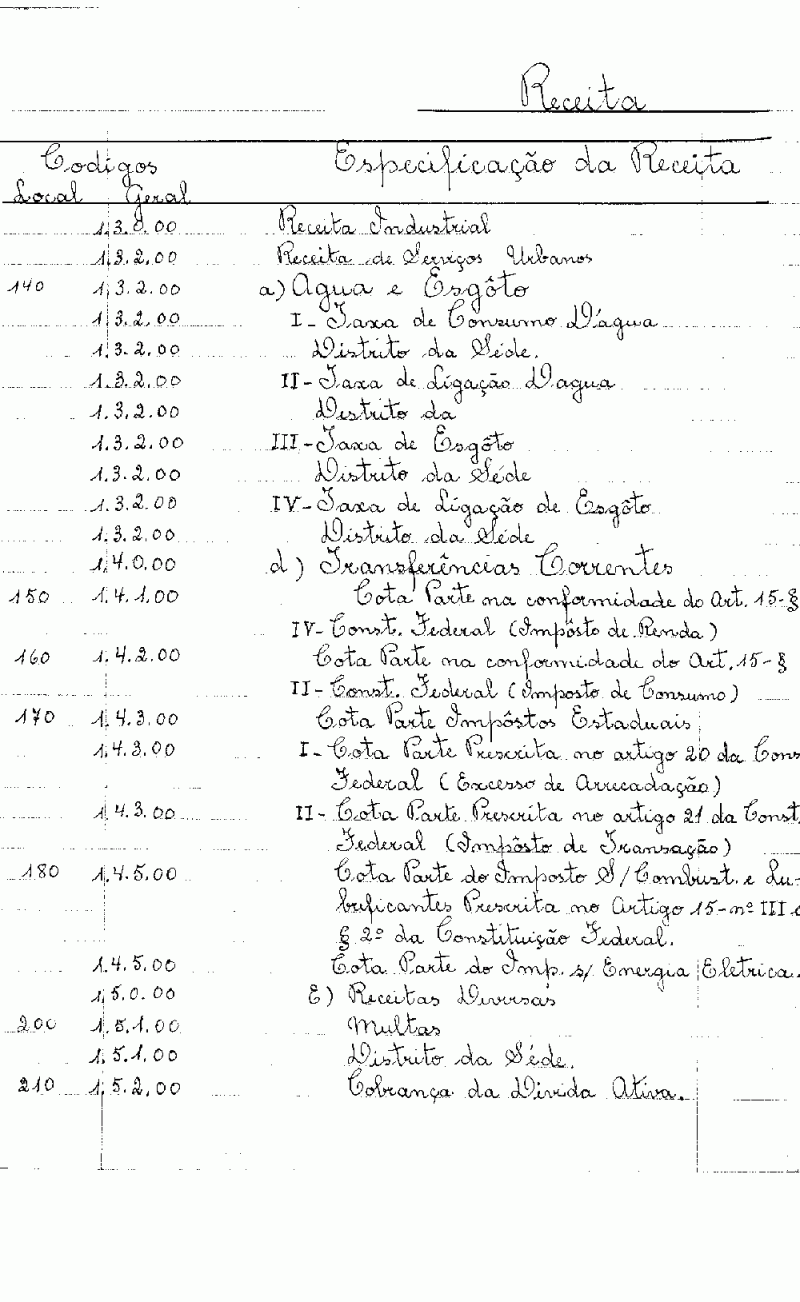 Receita
Codigos Especificação da Receita
Local Geral
1.3.0.00 Receita Industrial
1.3.2.00 Receita de Serviços Urbanos
140 1.3.2.00 a) Agua e Esgôto
1.3.2.00 I - Taxa de Consumo D'agua
1.3.2.00 Distrito da Séde.
1.3.2.00 II - Taxa de Ligação Dagua
1.3.2.00 Distrito da
1.3.2.00 III - Taxa de Esgôto
1.3.2.00 Distrito da Séde
1.3.2.00 IV - Taxa de Ligação de Esgôto
1.3.2.00 Distrito da Séde
1.4.0.00 d) Transferências Correntes
150 1.4.1.00 Cota Parte na conformidade do Art. 15 - §
IV - Const. Federal (Impôsto de Renda)
160 1.4.2.00 Cota Parte na conformidade do Art. 15 - §
II - Const. Federal (Imposto de Consumo)
170 1.4.3.00 Cota Parte Impôstos Estaduais
1.4.3.00 I - Cota Parte Prescrita no artigo 20 da Cons
Federal (Excesso de Arrecadação)
1.4.3.00 II - Cota Parte Prescrita no artigo 21 da Const.
Federal (Impôsto de Transação)
180 1.4.5.00 Cota Parte do Imposto S/ Combust. e Lu-
brificantes Prescrita no Artigo 15 - nº III
§ 2º da Constituição Federal.
1.4.5.00 Cota Parte do Imp. s/ Energia Eletrica.
1.5.0.00 E) Receitas Diversas
200 1.5.1.00 Multas
1.5.1.00 Distrito da Séde.
210 1.5.2.00 Cobrança da Divida Ativa.